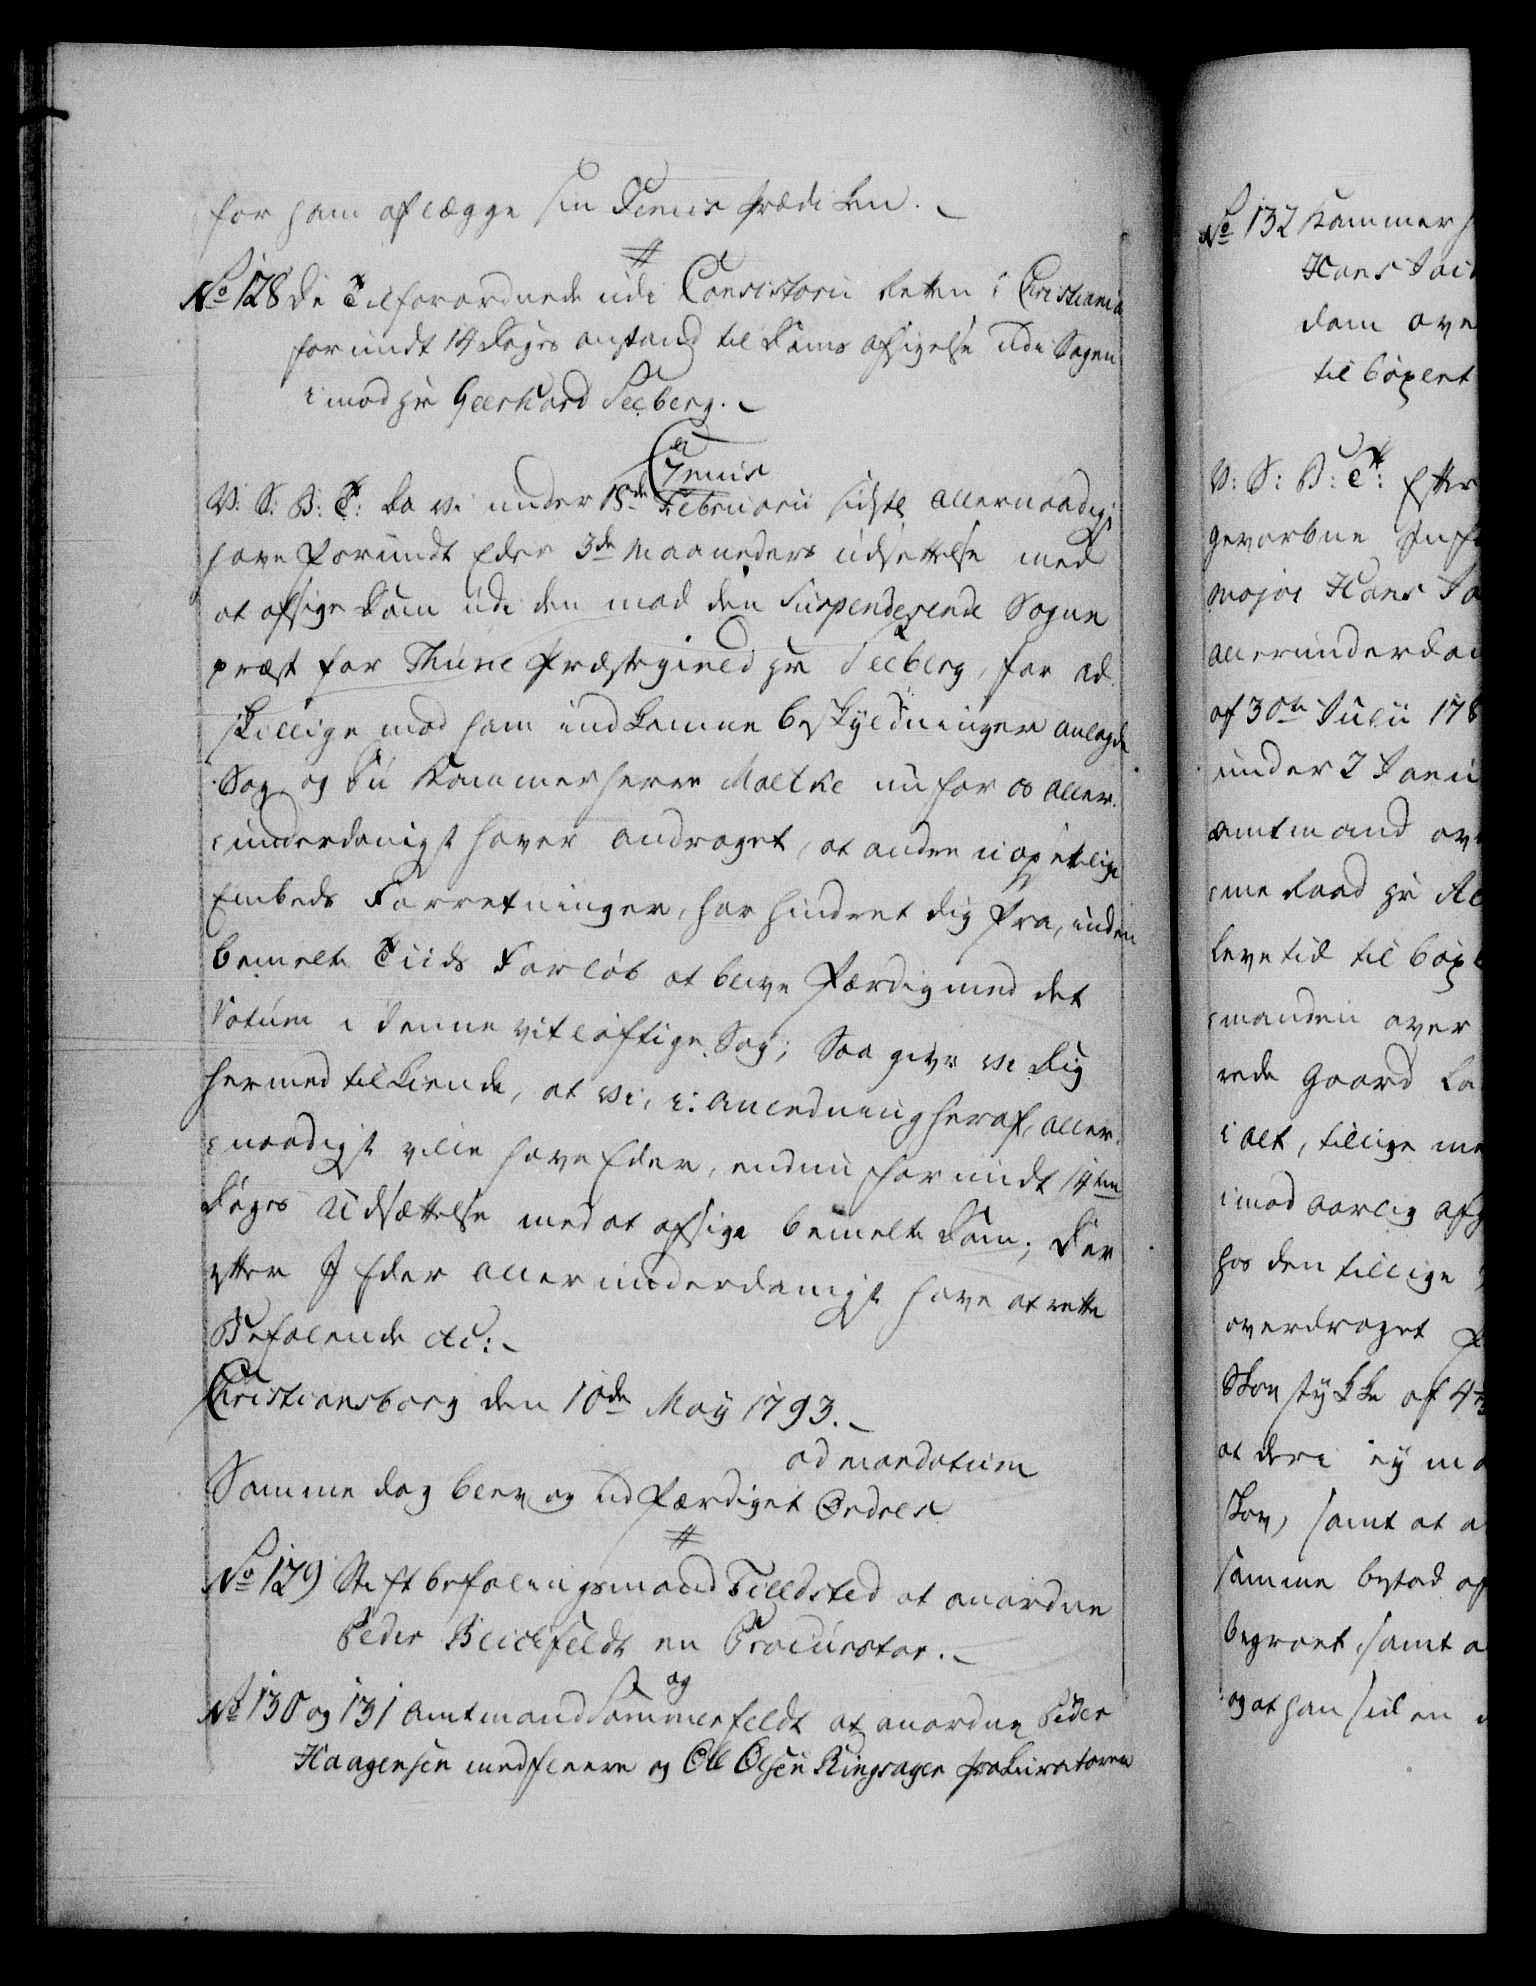 for ham aflægge sin Demis Prædiken.
No 128 De Tilforordnede udi Consistorii Retten i Christiania
forundt 14 Dages anstand til Doms afsigelse udi Sagen
imod Hr Geerhard Seeberg.
V: S: B: T: Da vi under 15de Februarii sidste allernaadigst
have forundt Eder 3de Maaneders udsettelse med
at afsige Dom udi den mod den Suspenderende Sogne
præst for Thune Præstegield Hr Seeberg, for ad
skillige mod ham indkomne beskyldninger anlagde
Sag, og Du Kammerherre Moltke nu for os aller
underdanigst haver andraget, at andre uopsættlige
Embeds Forretninger, har hindret dig fra, inden
bemelte Tiids Forløb at blive færdig med det
Votum i denne vitløftige Sag; Saa give vi Dig
hermed tilkiende, at vi, i anledning heraf, aller
naadigst ville have Eder, endnu forundt 14ten
Dages Udsættelse med at afsige bemelte Dom; Der
efter I Eder allerunderdanigst have at rette
Befalende etc:
Christiansborg den 10de May 1793.
ad mandatum
Samme dag blev og udfærdiget Ordres
No 129 Stiftbefalingsmand Filldsted at anordne
Peder Bleichfeldt en Procurator.
No 130 og 131 Amtmand Sommerfeldt at anordne Peder
Haagensen med fleere og Ole Olsen Ringsager Prokuratorer
No 132 Kammerh
Hans Jac
dom ove
til bøxlet
V: S: B: T: Efter
gevorbne Inf
major Hans Ja
allerunderdan
af 30te Julii 178
under 2 Janu
amtmand ov
me Raad Hr
leve tid til bøx
manden over
rede Gaard
i alt, tillige me
imod aarlig afg
hos den tillige
overdraget
Skov stykke af 4
at deri ey m
skov, samt at a
samme bestod af
begroet, samt a
og at han siden